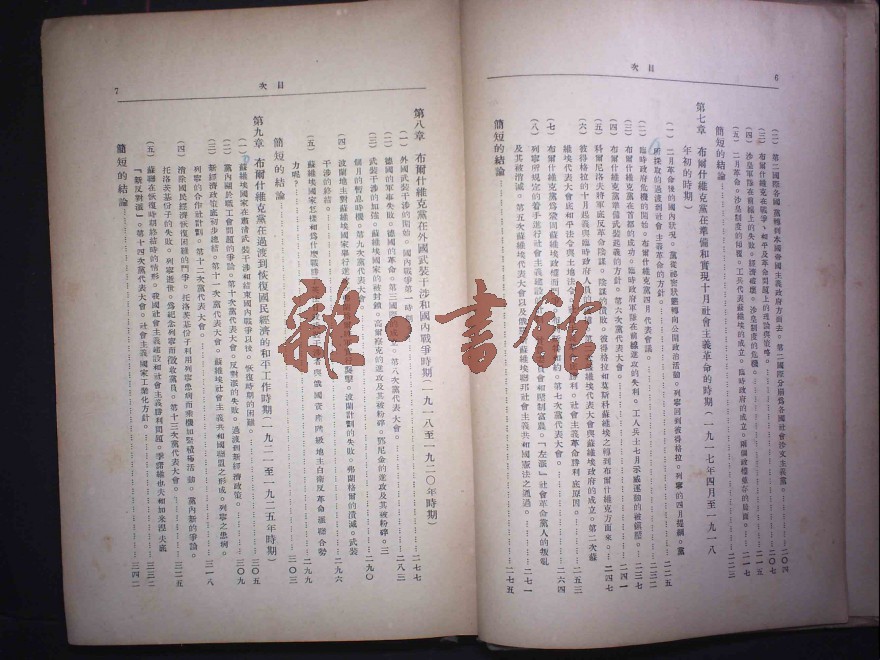 6
目次
(二) 第二國際各國黨轉到本國帝國主義政府方面去。第二國際分崩為各國社會沙文主義黨。二〇四
(三) 布爾什維克黨在戰爭、和平及革命問題上的理論與策略。二〇七
(四) 沙皇軍隊在前線上的失敗。經濟破壞。沙皇制度的危機。二一五
(五) 二月革命。沙皇制度的傾覆。工兵代表蘇維埃的成立。臨時政府的成立。兩個政權並存的局面。
簡短的結論 二二三
第七章 布爾什維克黨在準備和實現十月社會主義革命的時期(一九一七年四月至一九一八
年初的時期)
(一) 二月革命後的國內狀況。黨從祕密狀態轉向公開政治活動。列寧回到彼得格拉。列寧的四月提綱。黨
所採取的過渡到社會主義革命的方針。
(二) 臨時政府危機的開始。布爾什維克黨四月代表會議。
(三) 布爾什維克黨在首都的成功。臨時政府軍隊在前線進攻的失利。工人兵士七月示威運動的被鎮壓。
(四) 布爾什維克黨準備武裝起義的方針。第六次黨代表大會。二四一
(五) 科爾尼洛夫將軍底反革命陰謀。陰謀的潰敗。彼得格拉和莫斯科蘇維埃之轉到布爾什維克方面來。
(六) 彼得格拉的十月起義與臨時政府人員
維埃代表大會底和平法令與土地法令。社會主義革命勝利底原因。二五三
(七) 布爾什維克黨為鞏固蘇維埃政權而 第七次黨代表大會。二六四
(八) 列寧所規定的着手進行社會主義建設 貧農委員會和壓制富農。「左派」社會革命黨人的叛亂
及其被消滅。第五次蘇維埃代表大會以及俄 蘇維埃聯邦社會主義共和國憲法之通過。
簡短的結論 二七五
第八章 布爾什維克黨在外國武裝干涉和國內戰爭時期(一九一八至一九二〇年時期)
(一) 外國武裝干涉的開始。國內戰爭第一時期 二七七
(二) 德國的軍事失敗。德國的革命。第三國際 第八次黨代表大會。二八三
(三) 武裝干涉的加強。蘇維埃國家的被封鎖。高爾察克的進攻及其被粉碎。鄧尼金的進攻及其被粉碎。三
個月的暫息時機。第九次黨代表大會。二九〇
(四) 波蘭地主對蘇維埃國家舉行進 襲擊。波蘭計劃的失敗。弗蘭格爾的潰滅。武裝
干涉的終結。二九六
(五) 蘇維埃國家怎樣和為什麼戰勝了 者與俄國資產階級地主白衛反革命派聯合勢
力呢? 二九九
簡短的結論 三〇三
第九章 布爾什維克黨在過渡到恢復國民經濟的和平工作時期(一九二一至一九二五年時期)
(一) 蘇維埃國家在肅清武裝干涉和結束國內戰爭以後。恢復時期的困難。三〇五
(二) 黨內關於職工會問題的爭論。第十次黨代表大會。反對派的失敗。過渡到新經濟政策。三〇九
(三) 新經濟政策底初步總結。第十一次黨代表大會。蘇維埃社會主義共和國聯盟之形成。列寧之患病。
列寧的合作社計劃。第十二次黨代表大會。三一八
(四) 清除國民經濟恢復困難的鬥爭。托洛茨基份子利用列寧患病而乘機加緊積極活動。黨內新的爭論。
托洛茨基份子的失敗。列寧逝世。為紀念列寧而徵收黨員。第十三次黨代表大會。三二五
(五) 蘇聯在恢復時期終結時的情形。我國社會主義建設和社會主義勝利問題。季諾維也夫和加米涅夫底
「新反對派」。第十四次黨代表大會。社會主義國家工業化方針。三三二
簡短的結論 三四二
目次
7
雜·書館